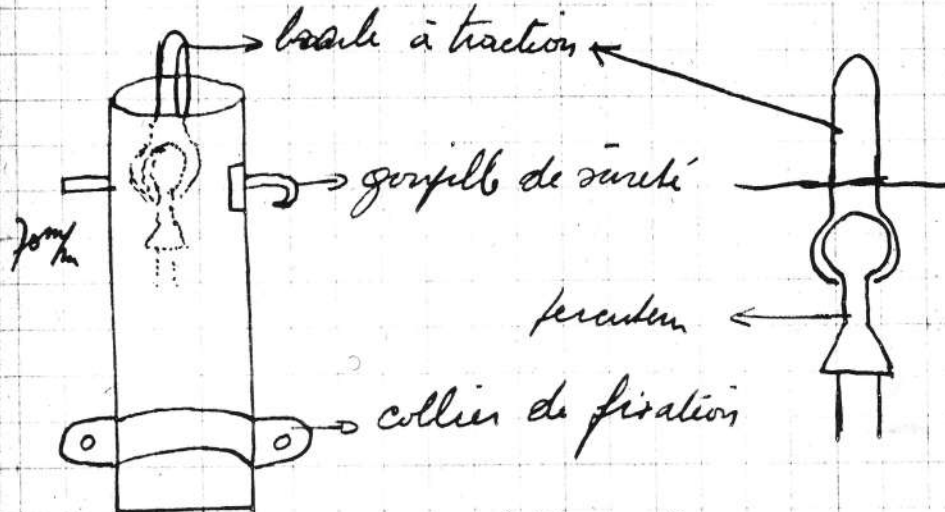 boucle à traction
goupille de sûreté
70 m/m
percuteur
collier de fixation